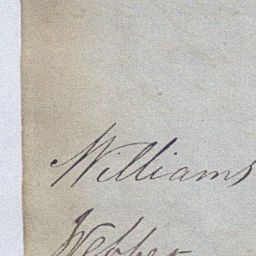 Williams
Webber